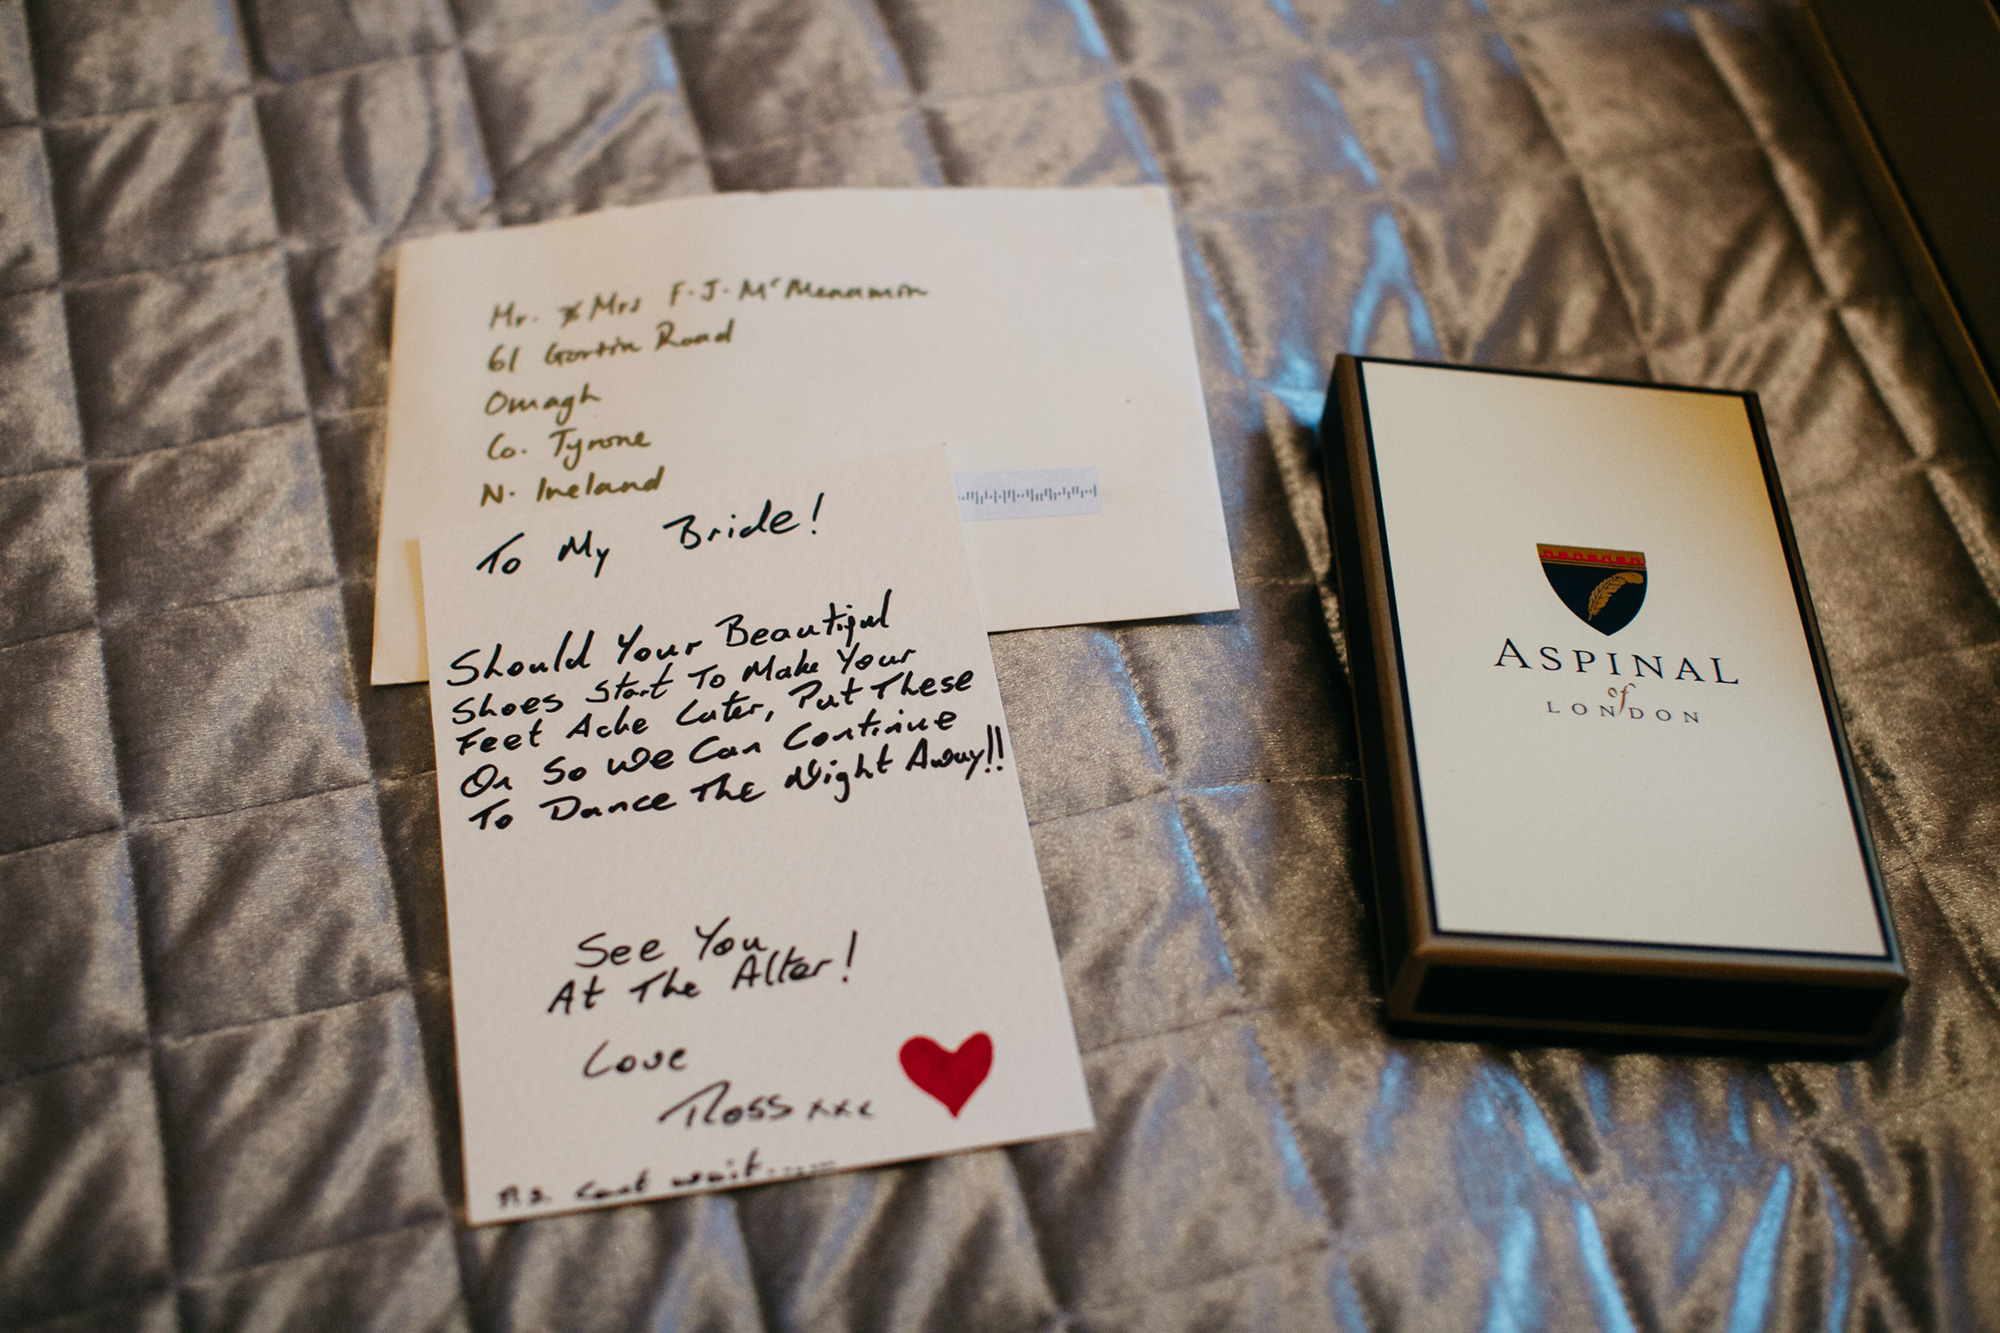 Mr. & Mrs F.J. McMenamin
61 Gortin Road
Omagh
Co. Tyrone
N. Ireland
To My Bride!
Should Your Beautiful
Shoes Start To Make Your
Feet Ache Later, Put These
On So We Can Continue
To Dance The Night Away!!
See You
At The Alter!
Love
Ross xxx
P.S. Cant wait......
ASPINAL
of
LONDON